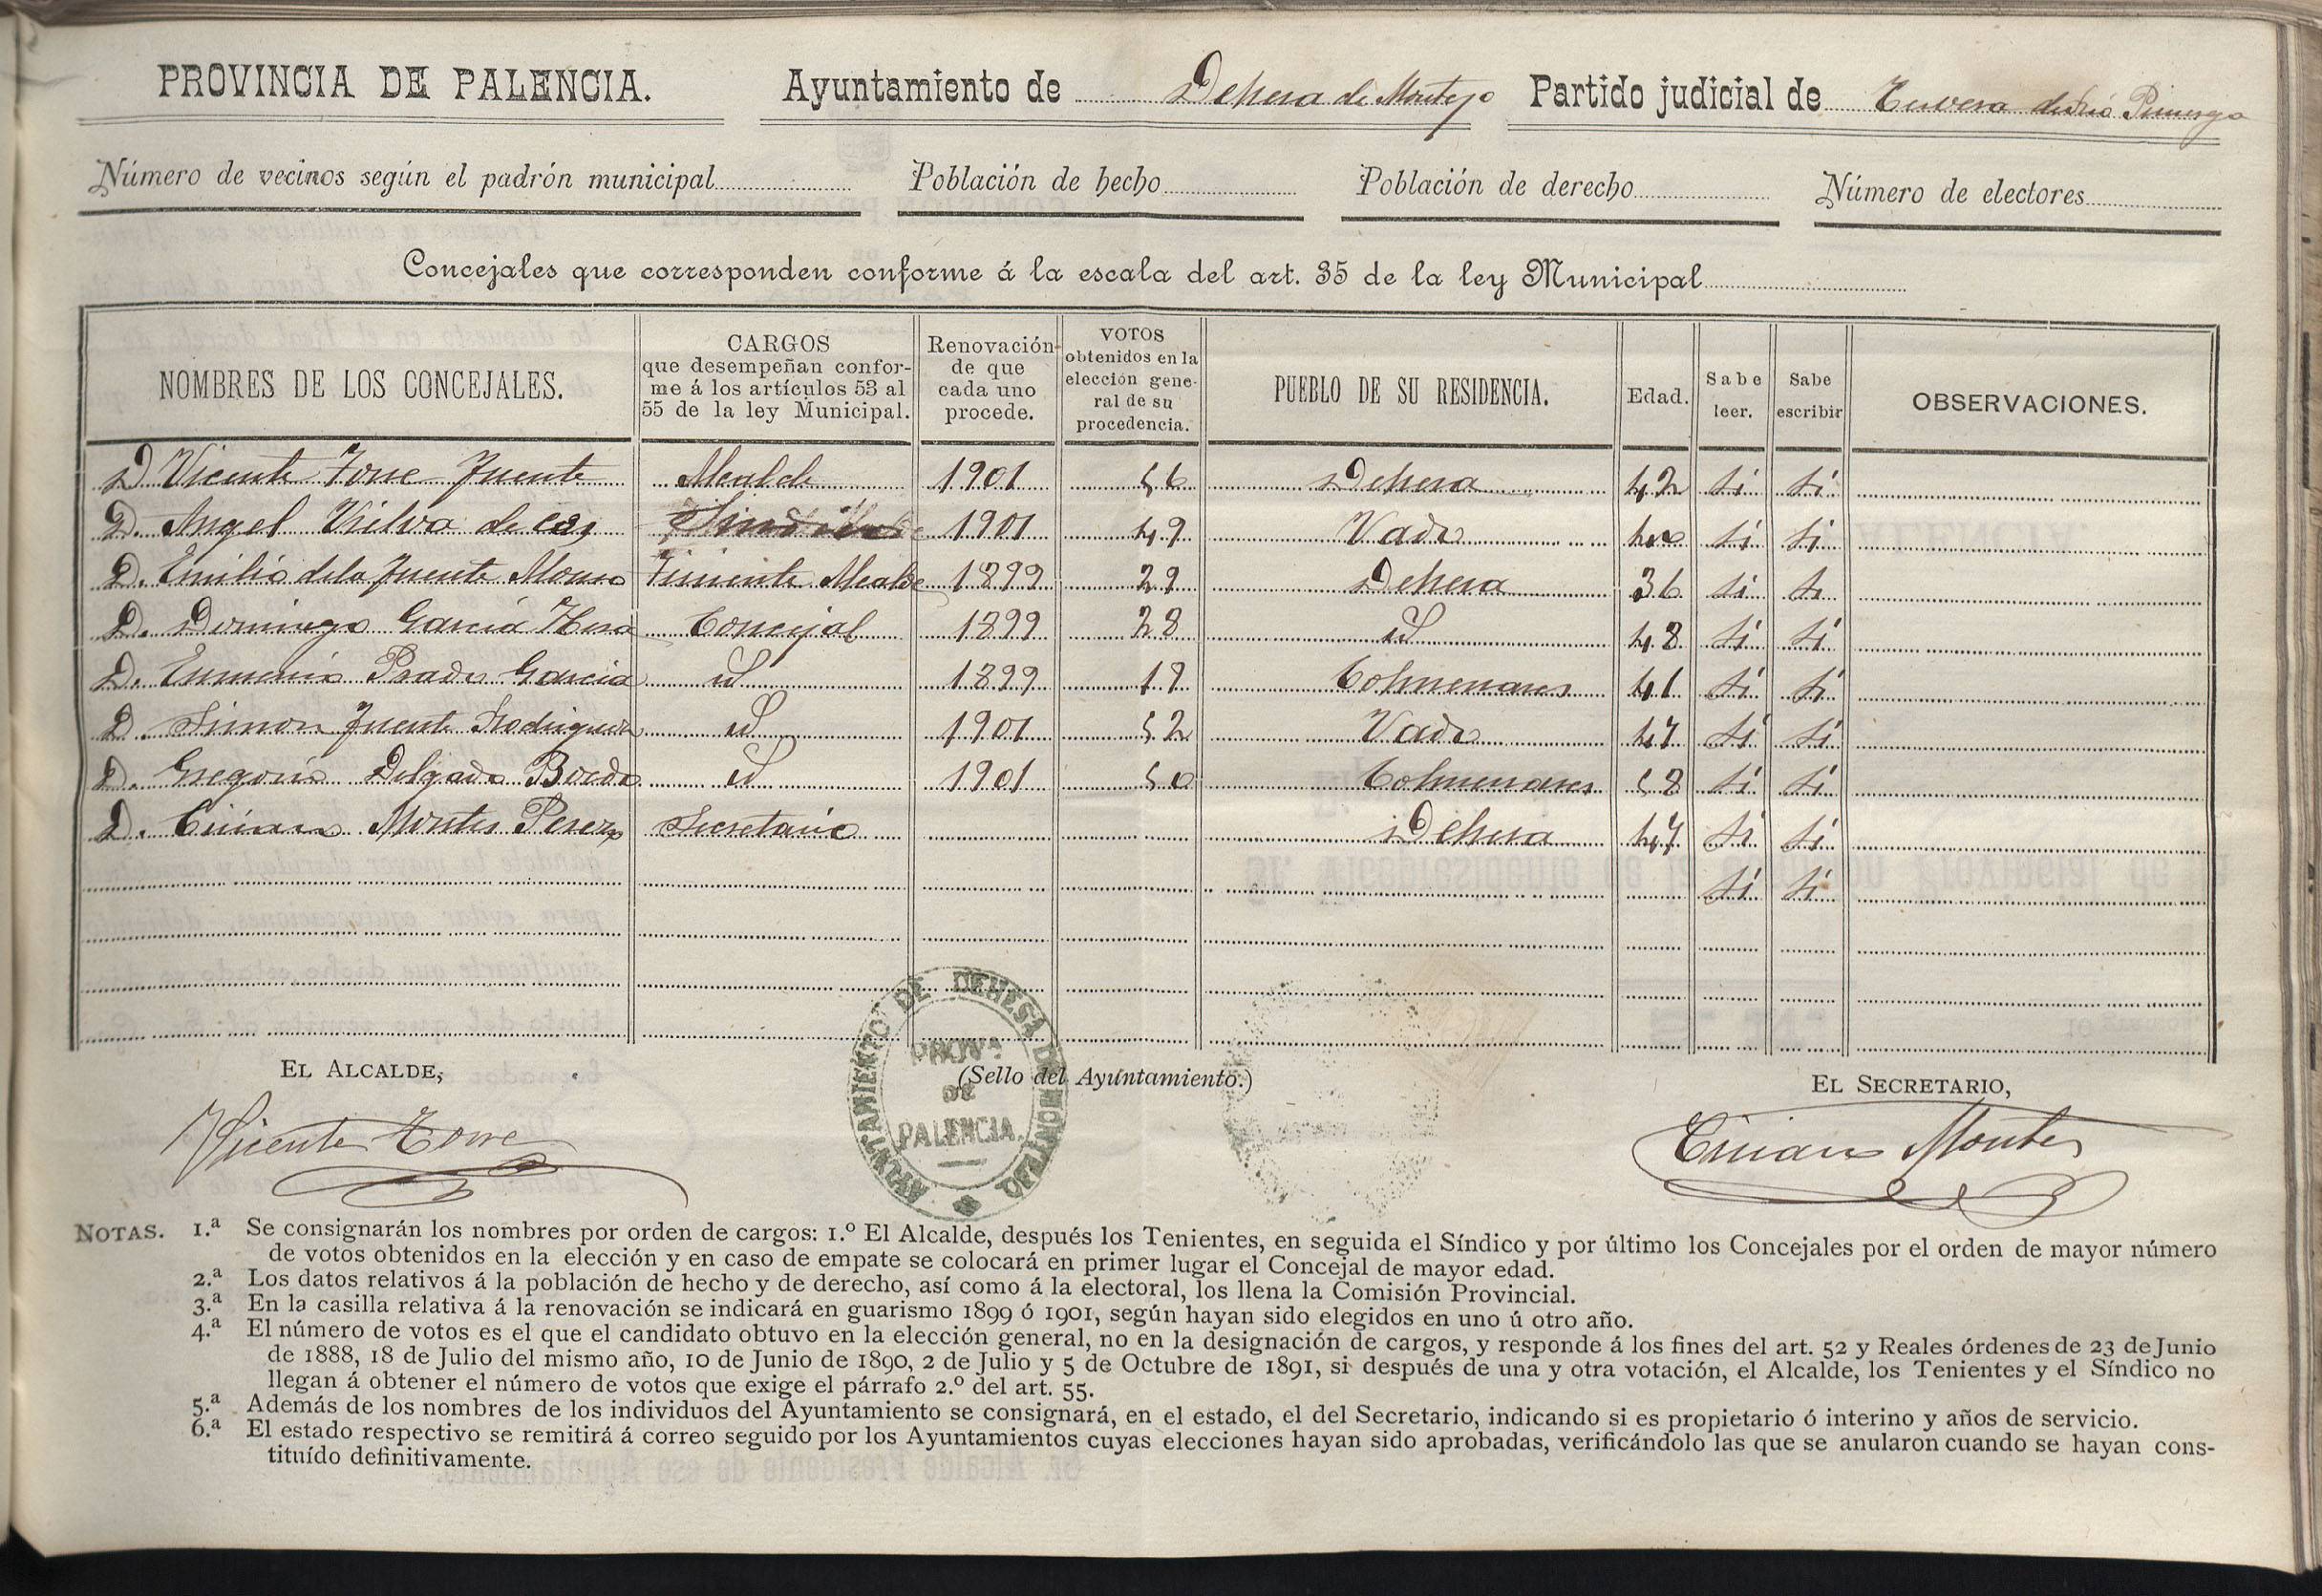 PROVINCIA DE PALENCIA. Ayuntamiento de Dehesa de Montejo Partido judicial de Cervera de Rio Pisuerga
Número de vecinos según el padrón municipal Población de hecho Población de derecho Número de electores
Concejales que corresponden conforme á la escala del art. 35 de la ley Municipal
NOMBRES DE LOS CONCEJALES. CARGOS que desempeñan conforme á los artículos 53 al 55 de la ley Municipal. Renovación de que cada uno procede. VOTOS obtenidos en la elección general de su procedencia. PUEBLO DE SU RESIDENCIA. Edad. Sabe leer. Sabe escribir OBSERVACIONES.
D. Vicente Torre Fuente Alcalde 1901 56 Dehesa 42 si si
D. Angel Vielva de Cos 1901 49 Vado si si
D. Emilio de la Fuente Teniente Alcalde 1899 29 Dehesa 36 si si
D. Domingo Garcia Concejal 1899 28 id 48 si si
D. Eumenio Prado Garcia id 1899 18 Colmenares 41 si si
D. Simon Fuente Rodriguez id 1901 52 Vado 47 si si
D. Gregorio Delgado Boedo id 1901 50 Colmenares 58 si si
D. Montes Perez Secretario Dehesa 47 si si
si si
EL ALCALDE, (Sello del Ayuntamiento.) EL SECRETARIO,
AYUNTAMIENTO DE DEHESA D MONTEJO
PROVª DE PALENCIA.
Vicente Torre Montes
NOTAS. 1.ª Se consignarán los nombres por orden de cargos: 1.º El Alcalde, después los Tenientes, en seguida el Síndico y por último los Concejales por el orden de mayor número
de votos obtenidos en la elección y en caso de empate se colocará en primer lugar el Concejal de mayor edad.
2.ª Los datos relativos á la población de hecho y de derecho, así como á la electoral, los llena la Comisión Provincial.
3.ª En la casilla relativa á la renovación se indicará en guarismo 1899 ó 1901, según hayan sido elegidos en uno ú otro año.
4.ª El número de votos es el que el candidato obtuvo en la elección general, no en la designación de cargos, y responde á los fines del art. 52 y Reales órdenes de 23 de Junio
de 1888, 18 de Julio del mismo año, 10 de Junio de 1890, 2 de Julio y 5 de Octubre de 1891, si después de una y otra votación, el Alcalde, los Tenientes y el Síndico no
llegan á obtener el número de votos que exige el párrafo 2.º del art. 55.
5.ª Además de los nombres de los individuos del Ayuntamiento se consignará, en el estado, el del Secretario, indicando si es propietario ó interino y años de servicio.
6.ª El estado respectivo se remitirá á correo seguido por los Ayuntamientos cuyas elecciones hayan sido aprobadas, verificándolo las que se anularon cuando se hayan cons-
tituído definitivamente.